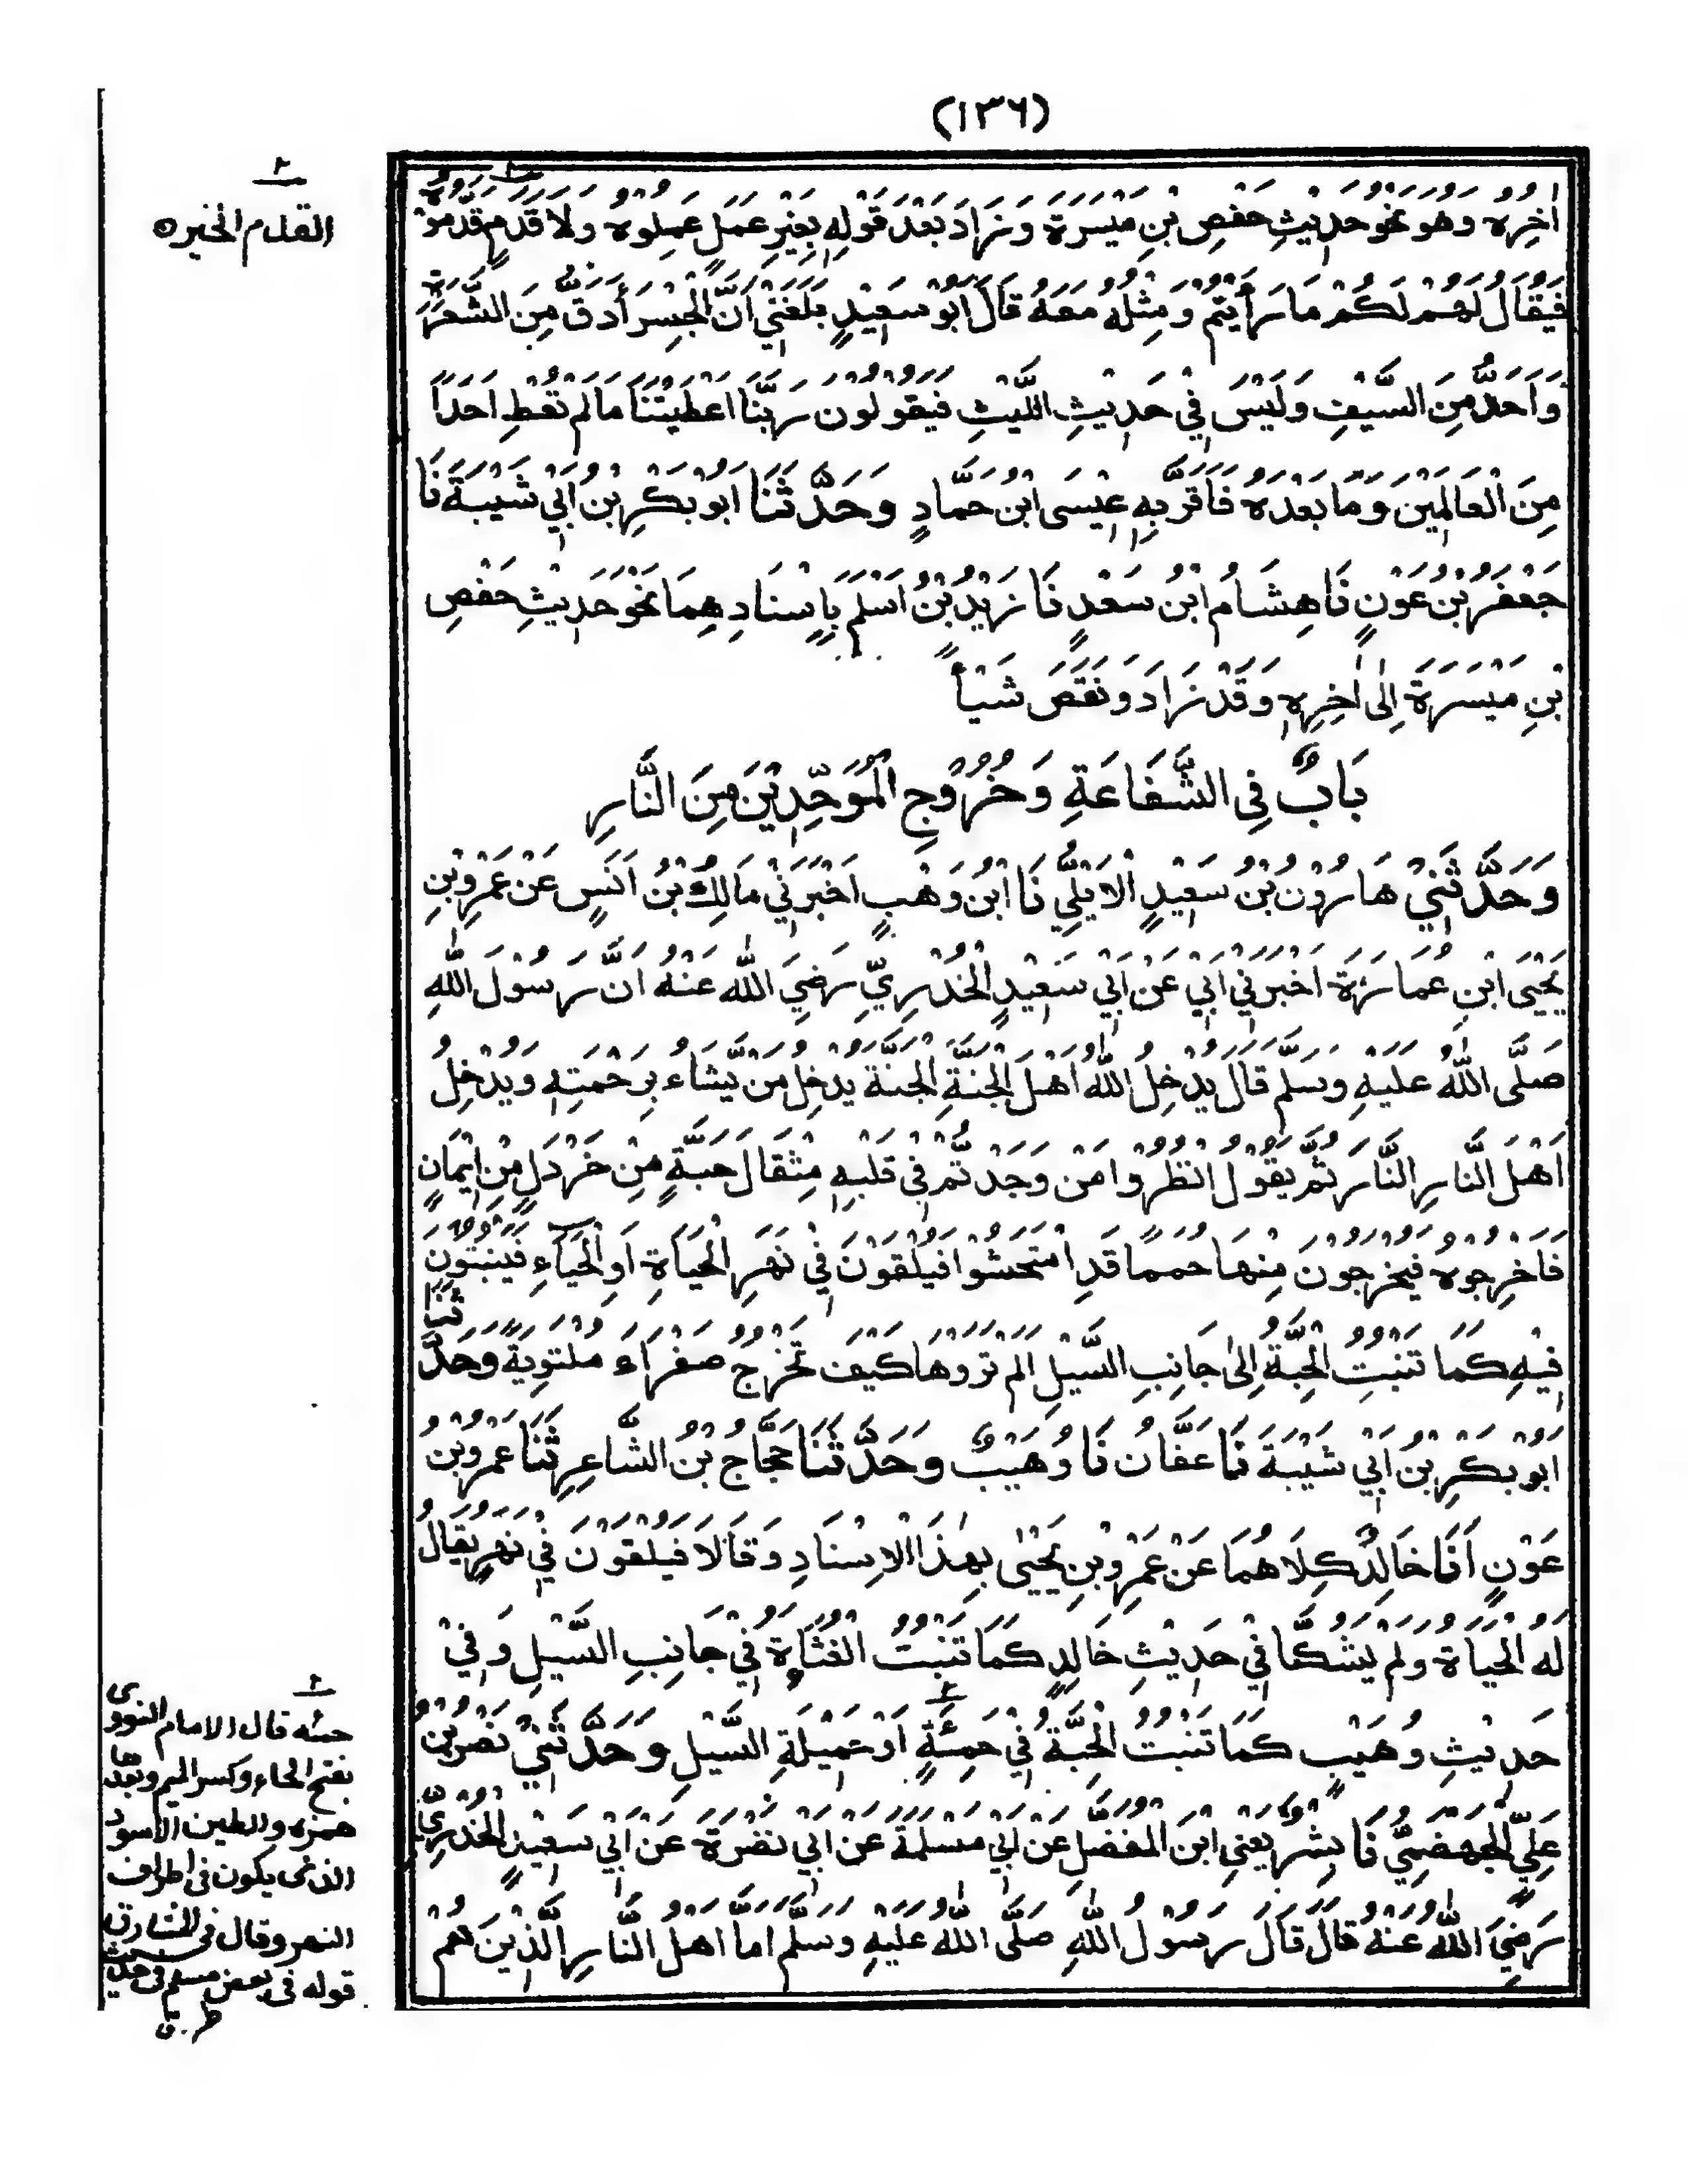 (١٣٦)
اٰخِرِهٖ وَهُوَ نَحْوُ حَدِيْثِ حَفْصِ بْنِ مَيْسَرَةَ وَزَادَ بَعْدَ قَوْلِهٖ بِغَيْرِ عَمَلٍ عَمِلُوْهُ وَلَا قَدَمٍ قَدَّمُوْهُ
فَيُقَالُ لَهُمْ لَكُمْ مَا رَأَيْتُمْ وَمِثْلُهُ مَعَهُ قَالَ اَبُوْ سَعِيْدٍ بَلَغَنِيْ اَنَّ الْجِسْرَ أَدَقُّ مِنَ الشَّعْرَةِ
وَاَحَدُّ مِنَ السَّيْفِ وَلَيْسَ فِيْ حَدِيْثِ اللَّيْثِ فَيَقُوْلُوْنَ رَبَّنَا اَعْطَيْتَنَا مَا لَمْ تُعْطِ اَحَدًا
مِنَ الْعَالَمِيْنَ وَمَا بَعْدَهُ فَاَقَرَّ بِهٖ عِيْسَى ابْنُ حَمَّادٍ وَحَدَّثَنَا اَبُوْ بَكْرِ بْنُ اَبِيْ شَيْبَةَ نَا
جَعْفَرُ بْنُ عَوْنٍ نَا هِشَامُ ابْنُ سَعْدٍ نَا زَيْدُ بْنُ اَسْلَمَ بِاِسْنَادِهِمَا نَحْوَ حَدِيْثِ حَفْصِ
بْنِ مَيْسَرَةَ اِلٰى اٰخِرِهٖ وَقَدْ زَادَ وَنَقَصَ شَيْأً
بَابٌ فِى الشَّفَاعَةِ وَخُرُوْجِ الْمُوَحِّدِيْنَ مِنَ النَّارِ
وَحَدَّثَنِيْ هَارُوْنُ بْنُ سَعِيْدٍ الْاَيْلِيُّ نَا ابْنُ وَهْبٍ اَخْبَرَنِيْ مَالِكُ بْنُ اَنَسٍ عَنْ عَمْرِو بْنِ
يَحْيَى ابْنِ عُمَارَةَ اَخْبَرَنِيْ اَبِيْ عَنْ اَبِيْ سَعِيْدٍ الْخُدْرِيِّ رَضِيَ اللّٰهُ عَنْهُ اَنَّ رَسُوْلَ اللّٰهِ
صَلَّى اللّٰهُ عَلَيْهِ وَسَلَّمَ قَالَ يُدْخِلُ اللّٰهُ اَهْلَ الْجَنَّةِ الْجَنَّةَ يُدْخِلُ مَنْ يَّشَاءُ بِرَحْمَتِهٖ وَيُدْخِلُ
اَهْلَ النَّارِ النَّارَ ثُمَّ يَقُوْلُ انْظُرُوْا مَنْ وَجَدْتُّمْ فِيْ قَلْبِهٖ مِثْقَالَ حَبَّةٍ مِّنْ خَرْدَلٍ مِّنْ اِيْمَانٍ
فَاَخْرِجُوْهُ فَيُخْرَجُوْنَ مِنْهَا حُمَمًا قَدِ امْتَحَشُوْا فَيُلْقَوْنَ فِيْ نَهَرِ الْحَيَاةِ اَوِ الْحَيَآءِ فَيَنْبُتُوْنَ
فِيْهِ كَمَا تَنْبُتُ الْحِبَّةُ اِلٰى جَانِبِ السَّيْلِ اَلَمْ تَرَوْهَا كَيْفَ تَخْرُجُ صَفْرَاءَ مُلْتَوِيَةً وَحَدَّثَنَا
اَبُوْ بَكْرِ بْنُ اَبِيْ شَيْبَةَ نَا عَفَّانُ نَا وُهَيْبٌ وَحَدَّثَنَا حَجَّاجُ بْنُ الشَّاعِرِ ثَنَا عَمْرُو بْنُ
عَوْنٍ اَنَا خَالِدٌ كِلَاهُمَا عَنْ عَمْرِو بْنِ يَحْيٰى بِهٰذَا الْاِسْنَادِ وَقَالَا فَيُلْقَوْنَ فِيْ نَهْرٍ يُقَالُ
لَهُ الْحَيَاةُ وَلَمْ يَشُكَّا فِيْ حَدِيْثِ خَالِدٍ كَمَا تَنْبُتُ الْغُثَاءَةُ فِيْ جَانِبِ السَّيْلِ وَفِيْ
حَدِيْثِ وُهَيْبٍ كَمَا تَنْبُتُ الْحِبَّةُ فِيْ حَمِئَةٍ اَوْ حَمِيْلَةِ السَّيْلِ وَحَدَّثَنِيْ نَصْرُ بْنُ
عَلِيٍّ الْجَهْضَمِيُّ نَا بِشْرٌ يَعْنِي ابْنَ الْمُفَضَّلِ عَنْ اَبِيْ مَسْلَمَةَ عَنْ اَبِيْ نَضْرَةَ عَنْ اَبِيْ سَعِيْدٍ الْخُدْرِيِّ
رَضِيَ اللّٰهُ عَنْهُ قَالَ قَالَ رَسُوْلُ اللّٰهِ صَلَّى اللّٰهُ عَلَيْهِ وَسَلَّمَ اَمَّا اَهْلُ النَّارِ الَّذِيْنَ هُمْ
٢
القدم الخير ٥
٢
حمئه قال الامام النووى
بفتح الحاء وكسر الميم وبعدها
همزه والطين الاسود
الذى يكون فى اطراف
النهر وقال فى المشارق
قوله فى بعض مسلم فى حديث